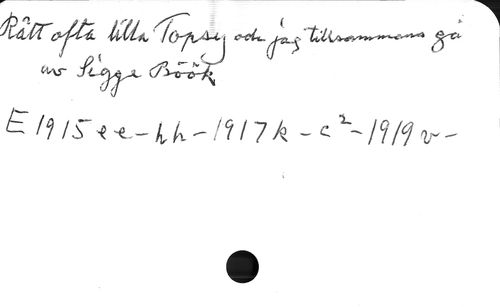 Rätt ofta lilla Topsy och jag tillsammans gå
av Sigge Böök
E 1915 e e - h h - 1917 k - c² - 1919 v -